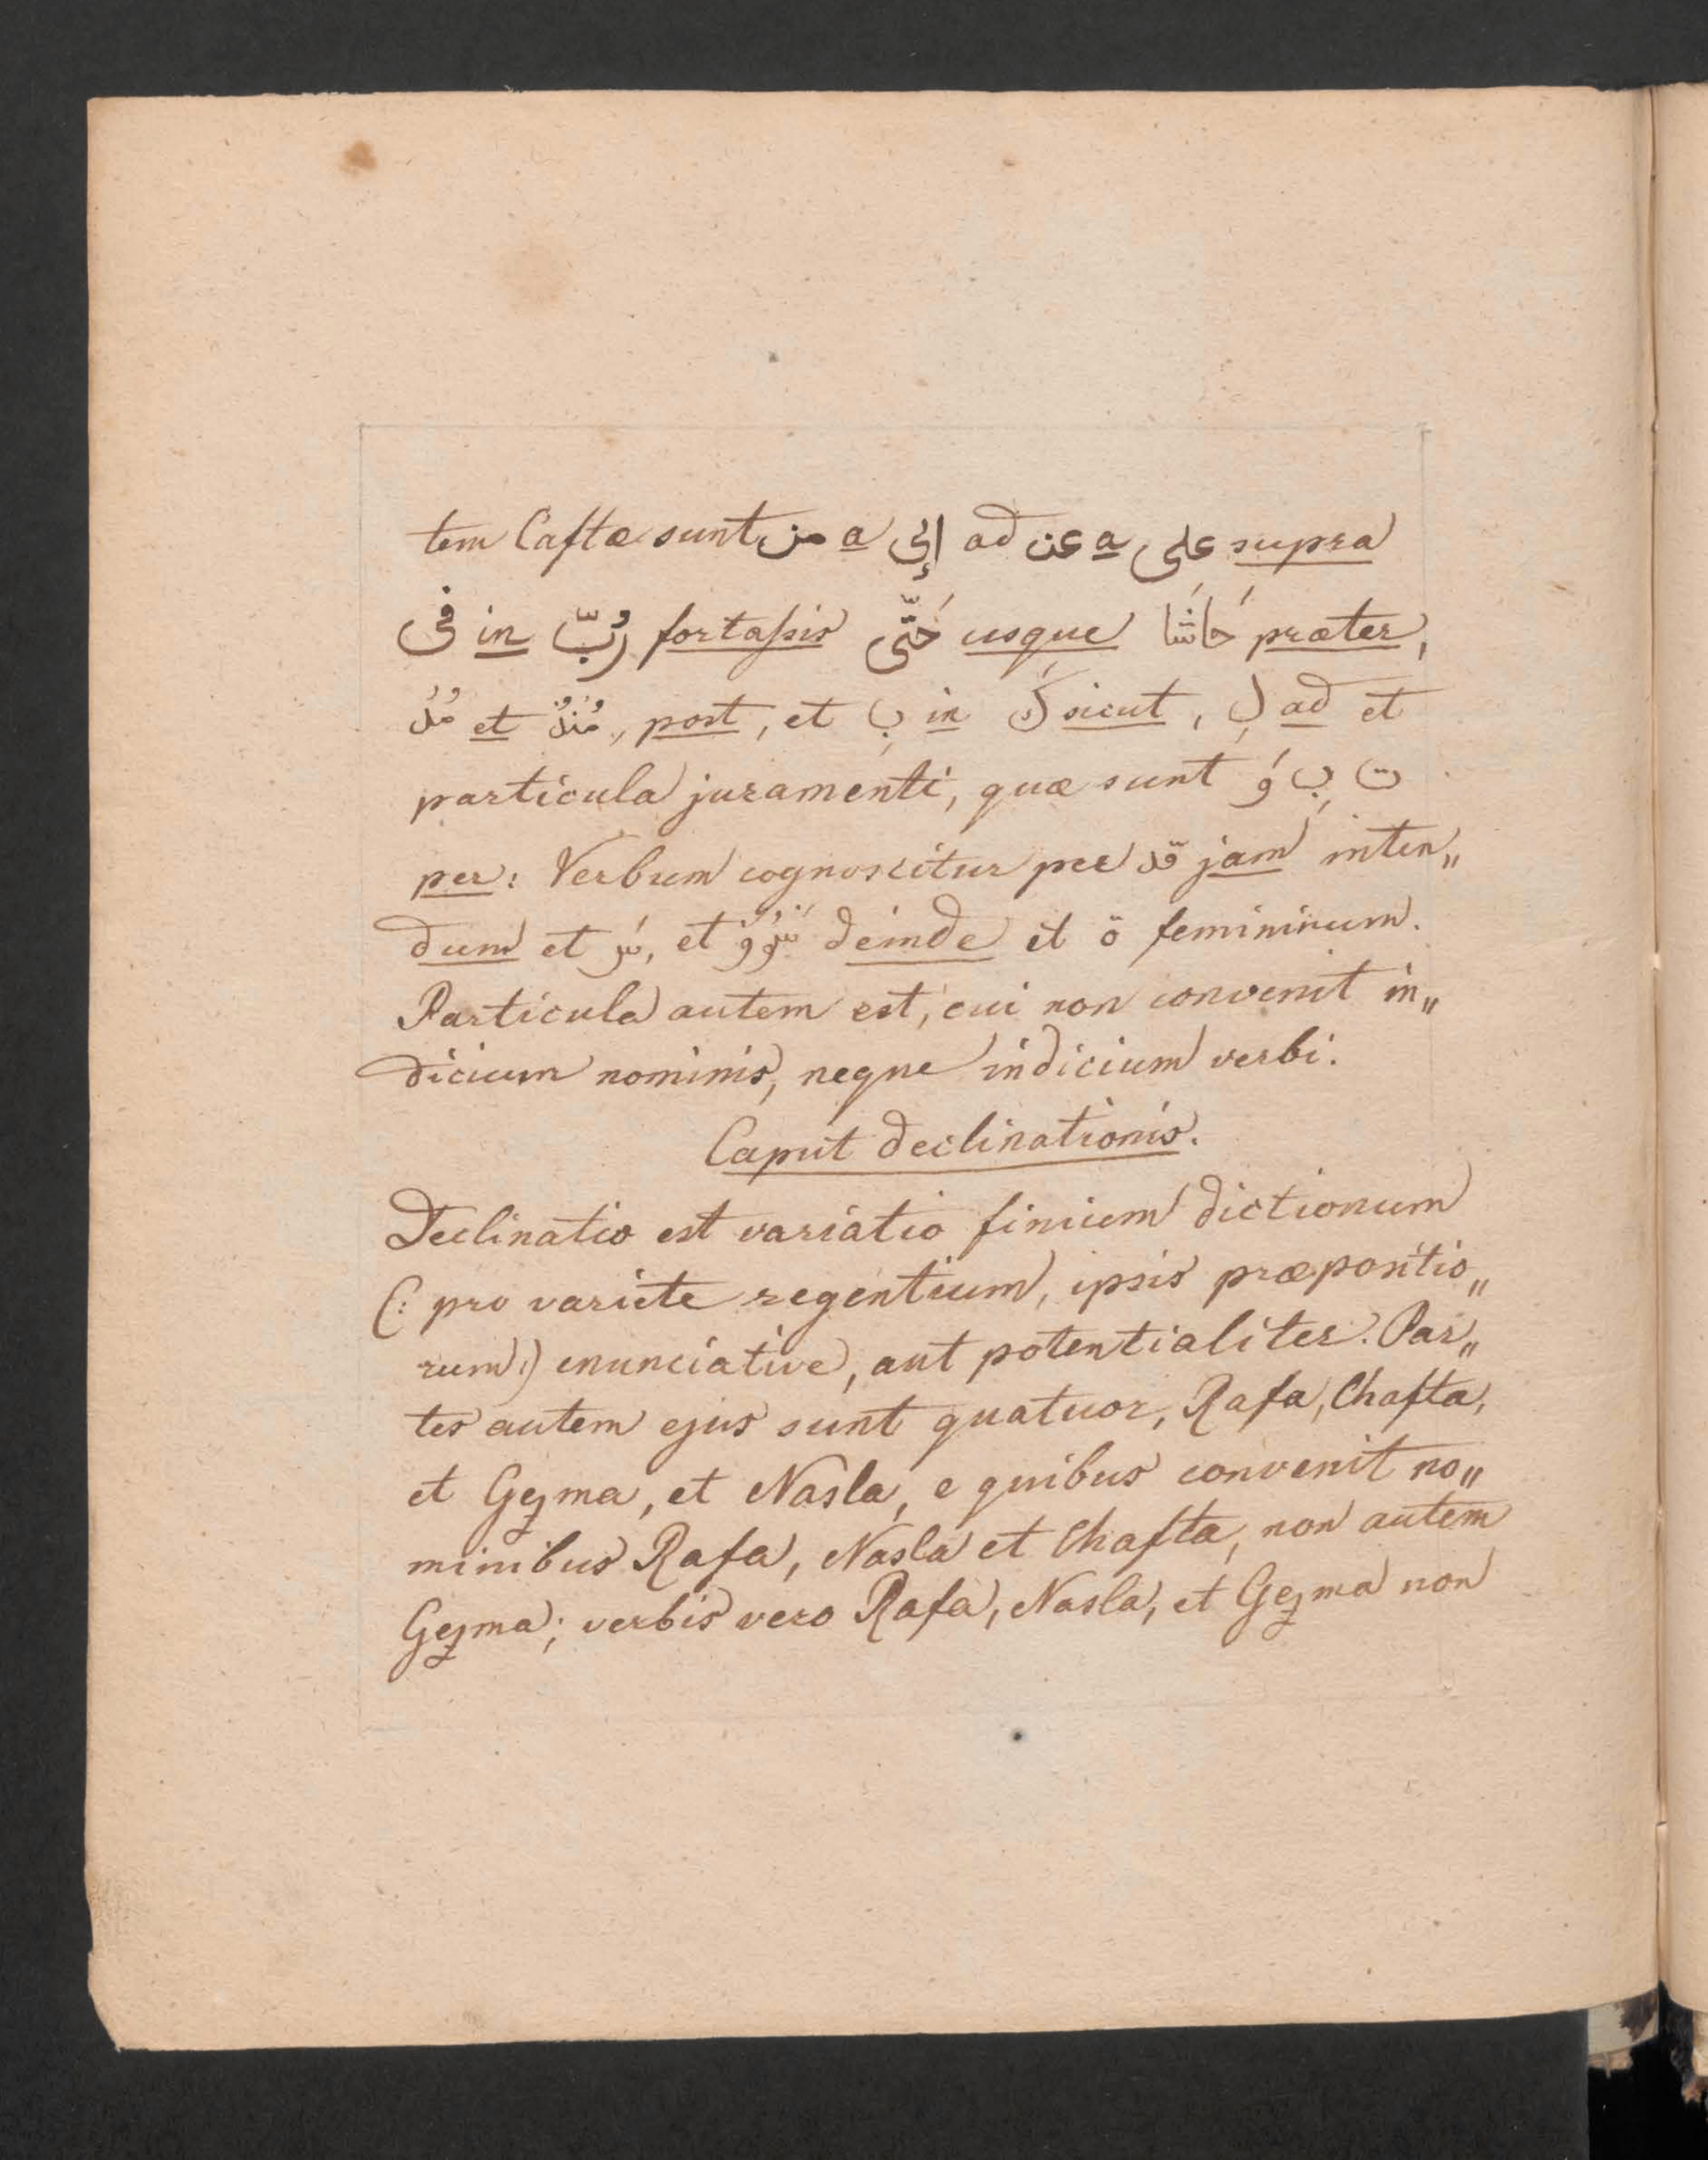 tem Caftæ sunt من a إلى ad عن a على supra
فى in رُبّ fortaſsis حَتّى usque حَاشَا præter,
مُذُ et مُنذُ, post, et بِ in كَ sicut, لِ ad et
particula juramenti, quæ sunt وَ بِ ت
per: Verbum cognoscitur per قد jam inten„
dum et سَ, et deinde et ö femininum.
Particula autem est, cui non convenit in„
dicium nominis, neque indicium verbi.
Caput declinationis.
Declinatio est variatio finium dictionum
(: pro variete regentium, ipsis præpositio„
rum:) enunciative, aut potentialiter. Par„
tes autem ejus sunt quatuor, Rafa, Chafta,
et Gezma, et Nasla, e quibus convenit no„
minibus Rafa, Nasla et Chafta, non autem
Gezma; verbis vero Rafa, Nasla, et Gezma non